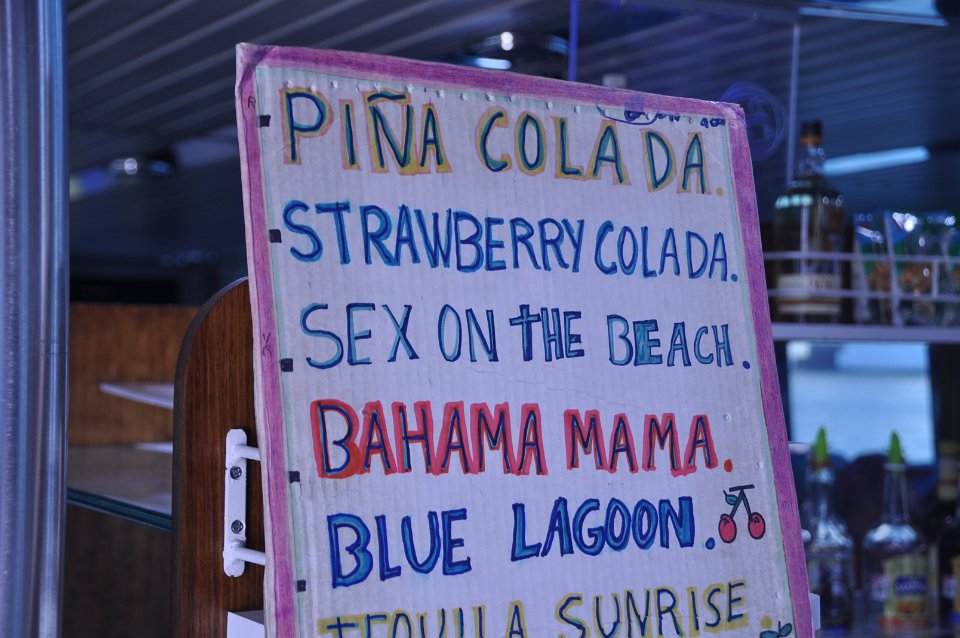 PIÑA COLADA.
STRAWBERRY COLADA.
SEX ON THE BEACH.
BAHAMA MAMA.
BLUE LAGOON.
TEQUILA SUNRISE.